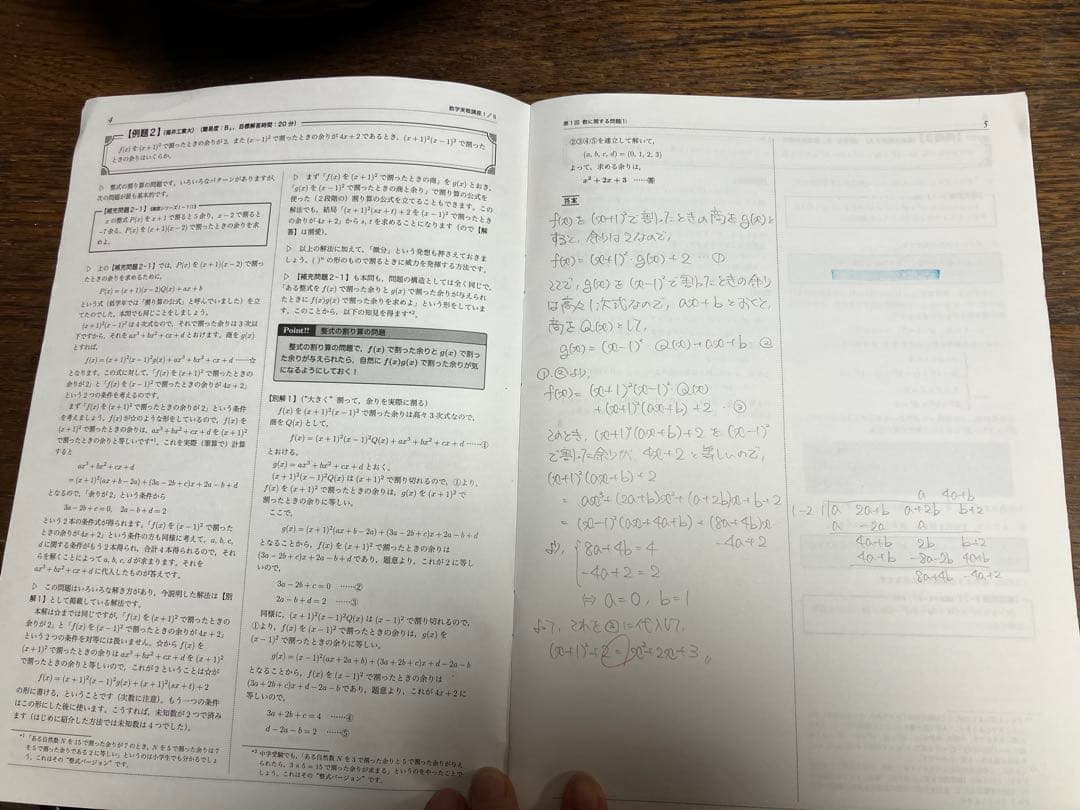 4
数学実戦講座1/8
【例題2】(福井工業大) (難易度:B、目標解答時間:20分)
f(x)を(x+1)²で割ったときの余りが2、また(x−1)²で割ったときの余りが4x+2であるとき、(x+1)²(x−1)²で割っ
たときの余りはいくらか。
▷ 整式の割り算の問題です。いろいろなパターンがありますが、
次の問が最も基本的です。
【補充問題2-1】
xの整式P(x)をx+1で割ると5余り、x−2で割ると
−7余る。P(x)を(x+1)(x−2)で割ったときの余りを求
めよ。
▷ 上の【補充問題2-1】では、P(x)を(x+1)(x−2)で割っ
たときの余りを求めるために、
P(x)=(x+1)(x−2)Q(x)+ax+b
という式(低学年では「割り算の公式」と呼んでいました)を立
てたのでした。本問でも同じことをしましょう。
(x+1)²(x−1)²は4次式なので、それで割った余りは3次以
下ですから、それをax³+bx²+cx+dとおけます。商をg(x)
とすれば、
f(x)=(x+1)²(x−1)²g(x)+ax³+bx²+cx+d ――☆
となります。この式に対して、「f(x)を(x+1)²で割ったときの
余りが2」と「f(x)を(x−1)²で割ったときの余りが4x+2」と
いう2つの条件を考えるのです。
まず「f(x)を(x+1)²で割ったときの余りが2」という条件
を考えましょう。f(x)が☆のような形をしているので、f(x)を
(x+1)²で割ったときの余りは、ax³+bx²+cx+dを(x+1)²で
割ったときの余りと等しいです*¹。これを実際(筆算で)計算
すると
ax³+bx²+cx+d
=(x+1)²(ax+b−2a)+(3a−2b+c)x+2a−b+d
となるので、「余りが2」という条件から
3a−2b+c=0, 2a−b+d=2
という2本の条件式が得られます。「f(x)を(x−1)²で割った
ときの余りが4x+2」という条件の方も同様に考えて、a, b, c,
dに関する条件がもう2本得られ、合計4本得られるので、それ
らを解くことによってa, b, c, dが求まります。それを
ax³+bx²+cx+dに代入したものが答えです。
▷ この問題はいろいろな解き方があり、今説明した解法は【別
解1】として掲載している解法です。
本解は☆までは同じですが、「f(x)を(x+1)²で割ったときの
余りが2」と「f(x)を(x−1)²で割ったときの余りが4x+2」
という2つの条件を対等には扱いません。☆からf(x)を
(x+1)²で割ったときの余りはax³+bx²+cx+dを(x+1)²で
割ったときの余りと等しいので、これが2ということは☆が
f(x)=(x+1)²(x−1)²g(x)+(x+1)²(sx+t)+2
の形に書ける、ということです(次数に注意)。もう一つの条件
はこの形にした後に使います。こうすれば、未知数が2つで済み
ます(はじめに紹介した方法では未知数は4つでした)。
*¹「ある自然数Nを15で割った余りが7のとき、Nを5で割った余りは7
を5で割った余りである2に等しい」というのは小学生でも分かるでしょ
う。これはその"整式バージョン"です。
▷ まず「f(x)を(x+1)²で割ったときの商」をg(x)とおき、
「g(x)を(x−1)²で割ったときの商と余り」で割り算の公式を
使った(2段階の)割り算の公式を立てることもできます。この
解法でも、結局「(x+1)²(sx+t)+2を(x−1)²で割ったとき
の余りが4x+2」からs, tを求めることになります(ので【解
答】は割愛)。
▷ 以上の解法に加えて、「微分」という発想も押さえておきま
しょう。( )ⁿの形のもので割るときに威力を発揮する方法です。
▷ 【補充問題2-1】も本問も、問題の構造としては全く同じで、
「ある整式をf(x)で割った余りとg(x)で割った余りが与えられ
たときにf(x)g(x)で割った余りを求めよ」という形をしていま
す。このことから、以下の知見を得ます*²。
Point!! 整式の割り算の問題
整式の割り算の問題で、f(x)で割った余りとg(x)で割っ
た余りが与えられたら、自然にf(x)g(x)で割った余りが気
になるようにしておく!
【別解1】("大きく"割って、余りを実際に割る)
f(x)を(x+1)²(x−1)²で割った余りは高々3次式なので、
商をQ(x)として、
f(x)=(x+1)²(x−1)²Q(x)+ax³+bx²+cx+d ……①
とおける。
g(x)=ax³+bx²+cx+dとおく。
(x+1)²(x−1)²Q(x)は(x+1)²で割り切れるので、①より、
f(x)を(x+1)²で割ったときの余りは、g(x)を(x+1)²で
割ったときの余りに等しい。
ここで、
g(x)=(x+1)²(ax+b−2a)+(3a−2b+c)x+2a−b+d
となることから、f(x)を(x+1)²で割ったときの余りは
(3a−2b+c)x+2a−b+dであり、題意より、これが2に等し
いので、
3a−2b+c=0 ……②
2a−b+d=2 ……③
同様に、(x+1)²(x−1)²Q(x)は(x−1)²で割り切れるので、
①より、f(x)を(x−1)²で割ったときの余りは、g(x)を
(x−1)²で割ったときの余りに等しい。
g(x)=(x−1)²(ax+2a+b)+(3a+2b+c)x+d−2a−b
となることから、f(x)を(x−1)²で割ったときの余りは
(3a+2b+c)x+d−2a−bであり、題意より、これが4x+2に
等しいので、
3a+2b+c=4 ……④
d−2a−b=2 ……⑤
*²中学受験でも、「ある自然数Nを3で割った余りと5で割った余りが与え
られたら、3×5=15で割った余りが求まる」というのをやったことで
しょう。これはその"整式バージョン"です。
第1回 数に関する問題(1)
5
②③④⑤を連立して解いて、
(a, b, c, d)=(0, 1, 2, 3)
よって、求める余りは、
x²+2x+3 ……答
答案
f(x)を(x+1)²で割ったときの商をg(x)と
すると、余りは2なので、
f(x)=(x+1)² g(x)+2 …①
ここで、g(x)を(x−1)²で割ったときの余り
は高々1次式なので、ax+bとおくと、
商をQ(x)として、
g(x)=(x−1)²・Q(x)+ax+b …②
①,②より、
f(x)=(x+1)²(x−1)²Q(x)
+(x+1)²(ax+b)+2 …③
このとき、(x+1)²(ax+b)+2を(x−1)²
で割った余りが4x+2と等しいので、
(x+1)²(ax+b)+2
=ax³+(2a+b)x²+(a+2b)x+b+2
=(x−1)²(ax+4a+b)+(8a+4b)x
−4a+2
より、{8a+4b=4
−4a+2=2
⇔ a=0, b=1
よって、これを③に代入して、
(x+1)²+2=x²+2x+3 〃
a 4a+b
1 −2 1 a 2a+b a+2b b+2
a −2a a
4a+b 2b b+2
4a+b −8a−2b 4a+b
8a+4b −4a+2